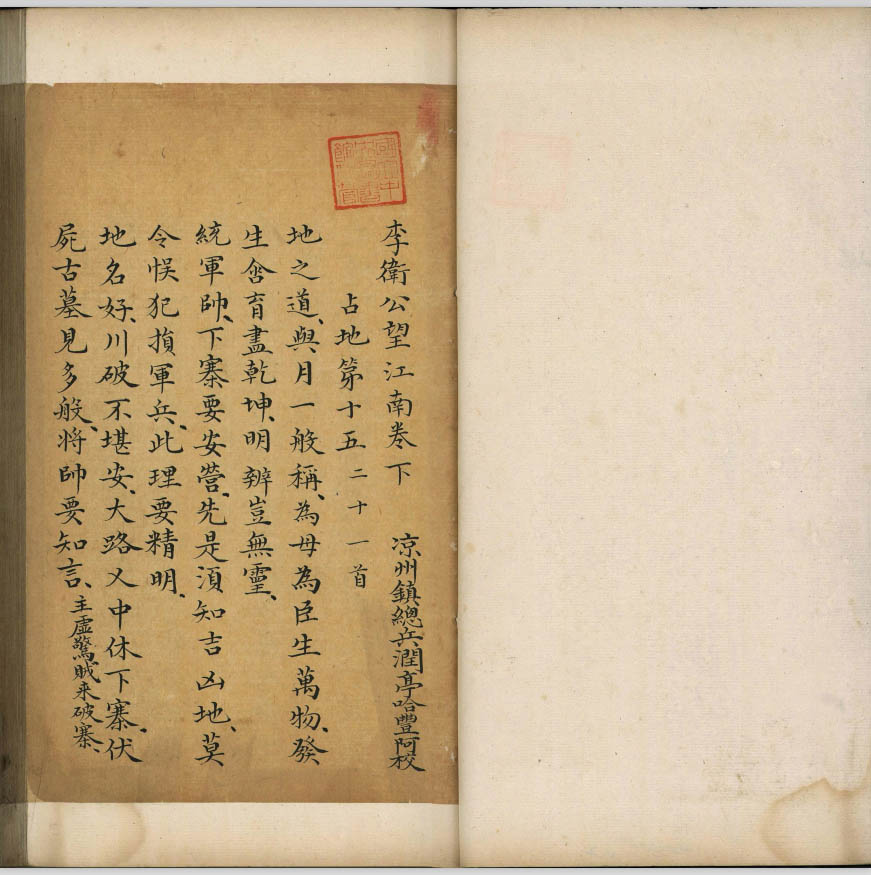 李衛公望江南卷下 凉州鎮總兵潤亭哈豐阿校
占地第十五 二十一首
地之道、與月一般稱、為母為臣生萬物、發
生含育盡乾坤、明辨豈無靈、
統軍帥、下寨要安營、先是須知吉凶地、莫
令悞犯損軍兵、此理要精明、
地名好、川破不堪安、大路乂中休下寨、伏
屍古墓見多般、將帥要知言、主虛驚、賊来破寨、